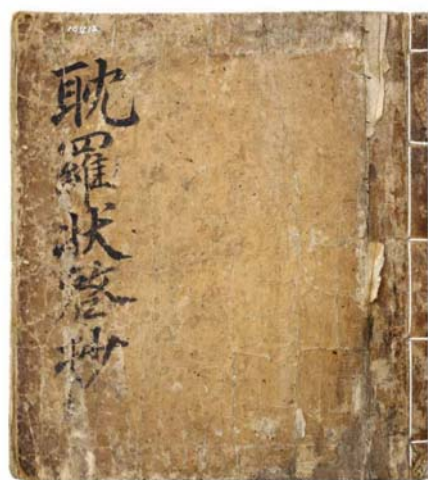 耽羅狀啓抄